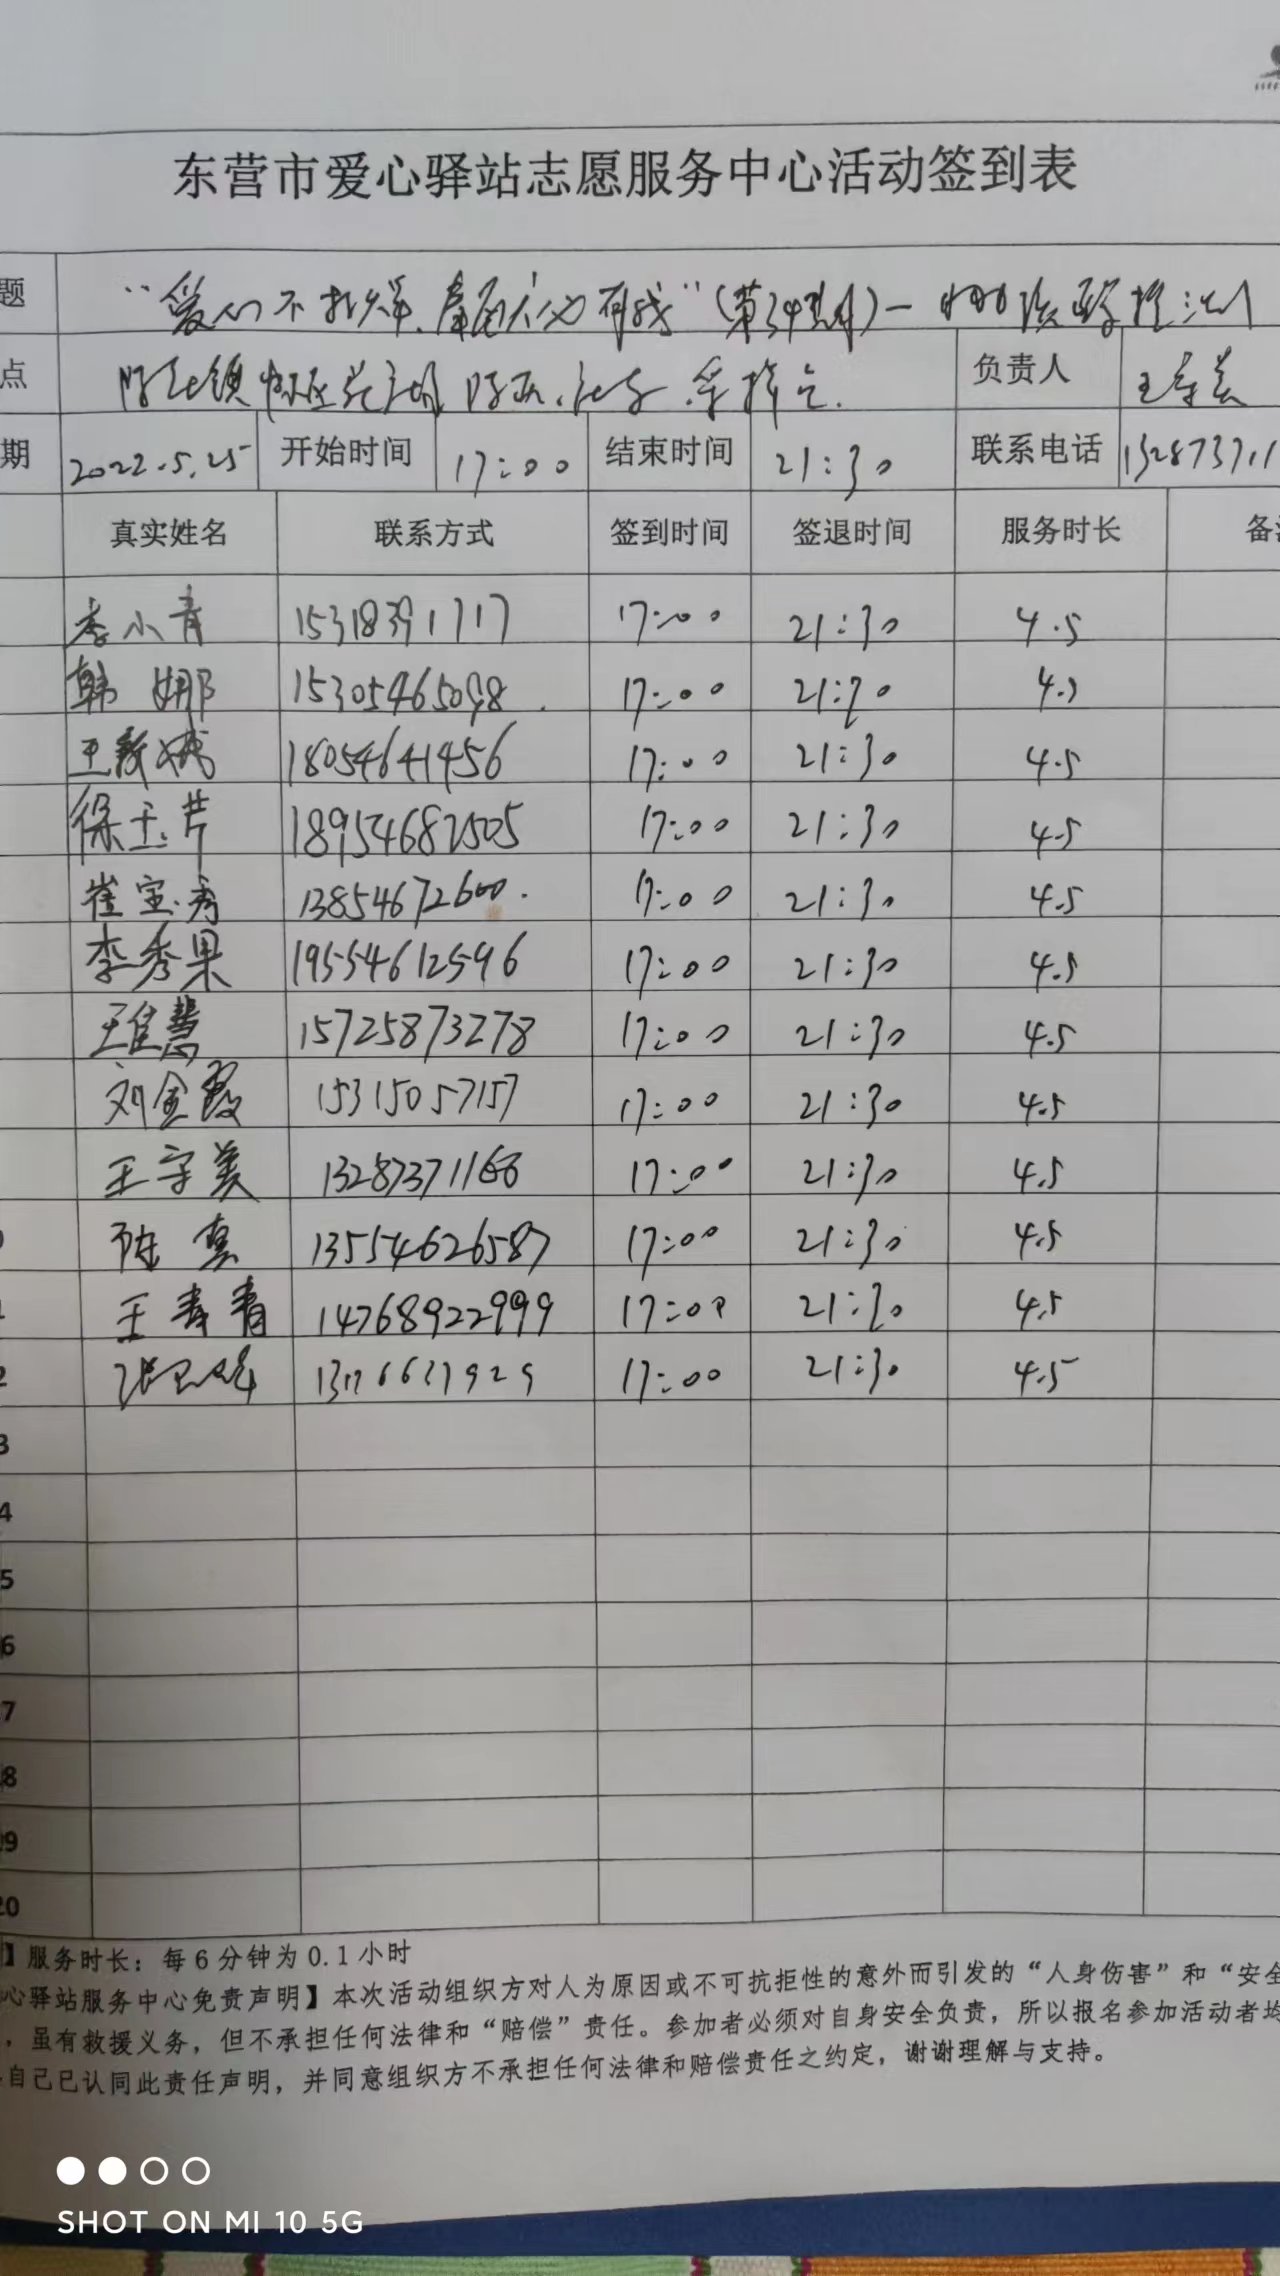 东营市爱心驿站志愿服务中心活动签到表
题
点 负责人
期 2022.5.25 开始时间 17:00 结束时间 21:30 联系电话 132873711
真实姓名 联系方式 签到时间 签退时间 服务时长 备注
李小青 15318391717 17:00 21:30 4.5
韩娜 15305465098 17:00 21:30 4.5
王新城 18054641456 17:00 21:30 4.5
徐玉芹 18954682505 17:00 21:30 4.5
崔宝秀 13854672600 17:00 21:30 4.5
李秀果 19554612596 17:00 21:30 4.5
王佳慧 15725873278 17:00 21:30 4.5
刘金霞 15315057157 17:00 21:30 4.5
王守美 13287371166 17:00 21:30 4.5
陈真 13554626587 17:00 21:30 4.5
王青青 14768922999 17:00 21:30 4.5
2 17:00 21:30 4.5
3
4
5
6
7
8
9
20
】服务时长：每6分钟为0.1小时
心驿站服务中心免责声明】本次活动组织方对人为原因或不可抗拒性的意外而引发的“人身伤害”和“安全
，虽有救援义务，但不承担任何法律和“赔偿”责任。参加者必须对自身安全负责，所以报名参加活动者均
自己已认同此责任声明，并同意组织方不承担任何法律和赔偿责任之约定，谢谢理解与支持。
SHOT ON MI 10 5G